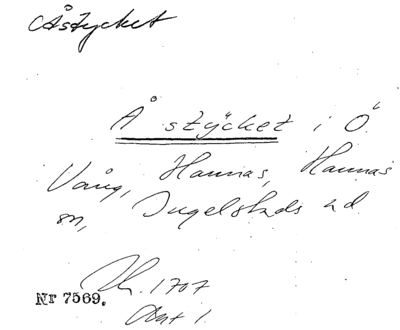 Åstycket
Å stycket i Ö
Vång, Hannas, Hannas
sn, Ingelstads hd
1707
Akt 1.
Nr 7569.